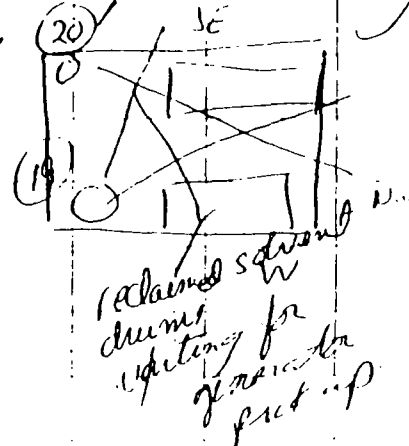 20
SE
19
reclaimed solvent
drums
waiting for
generator
pick up